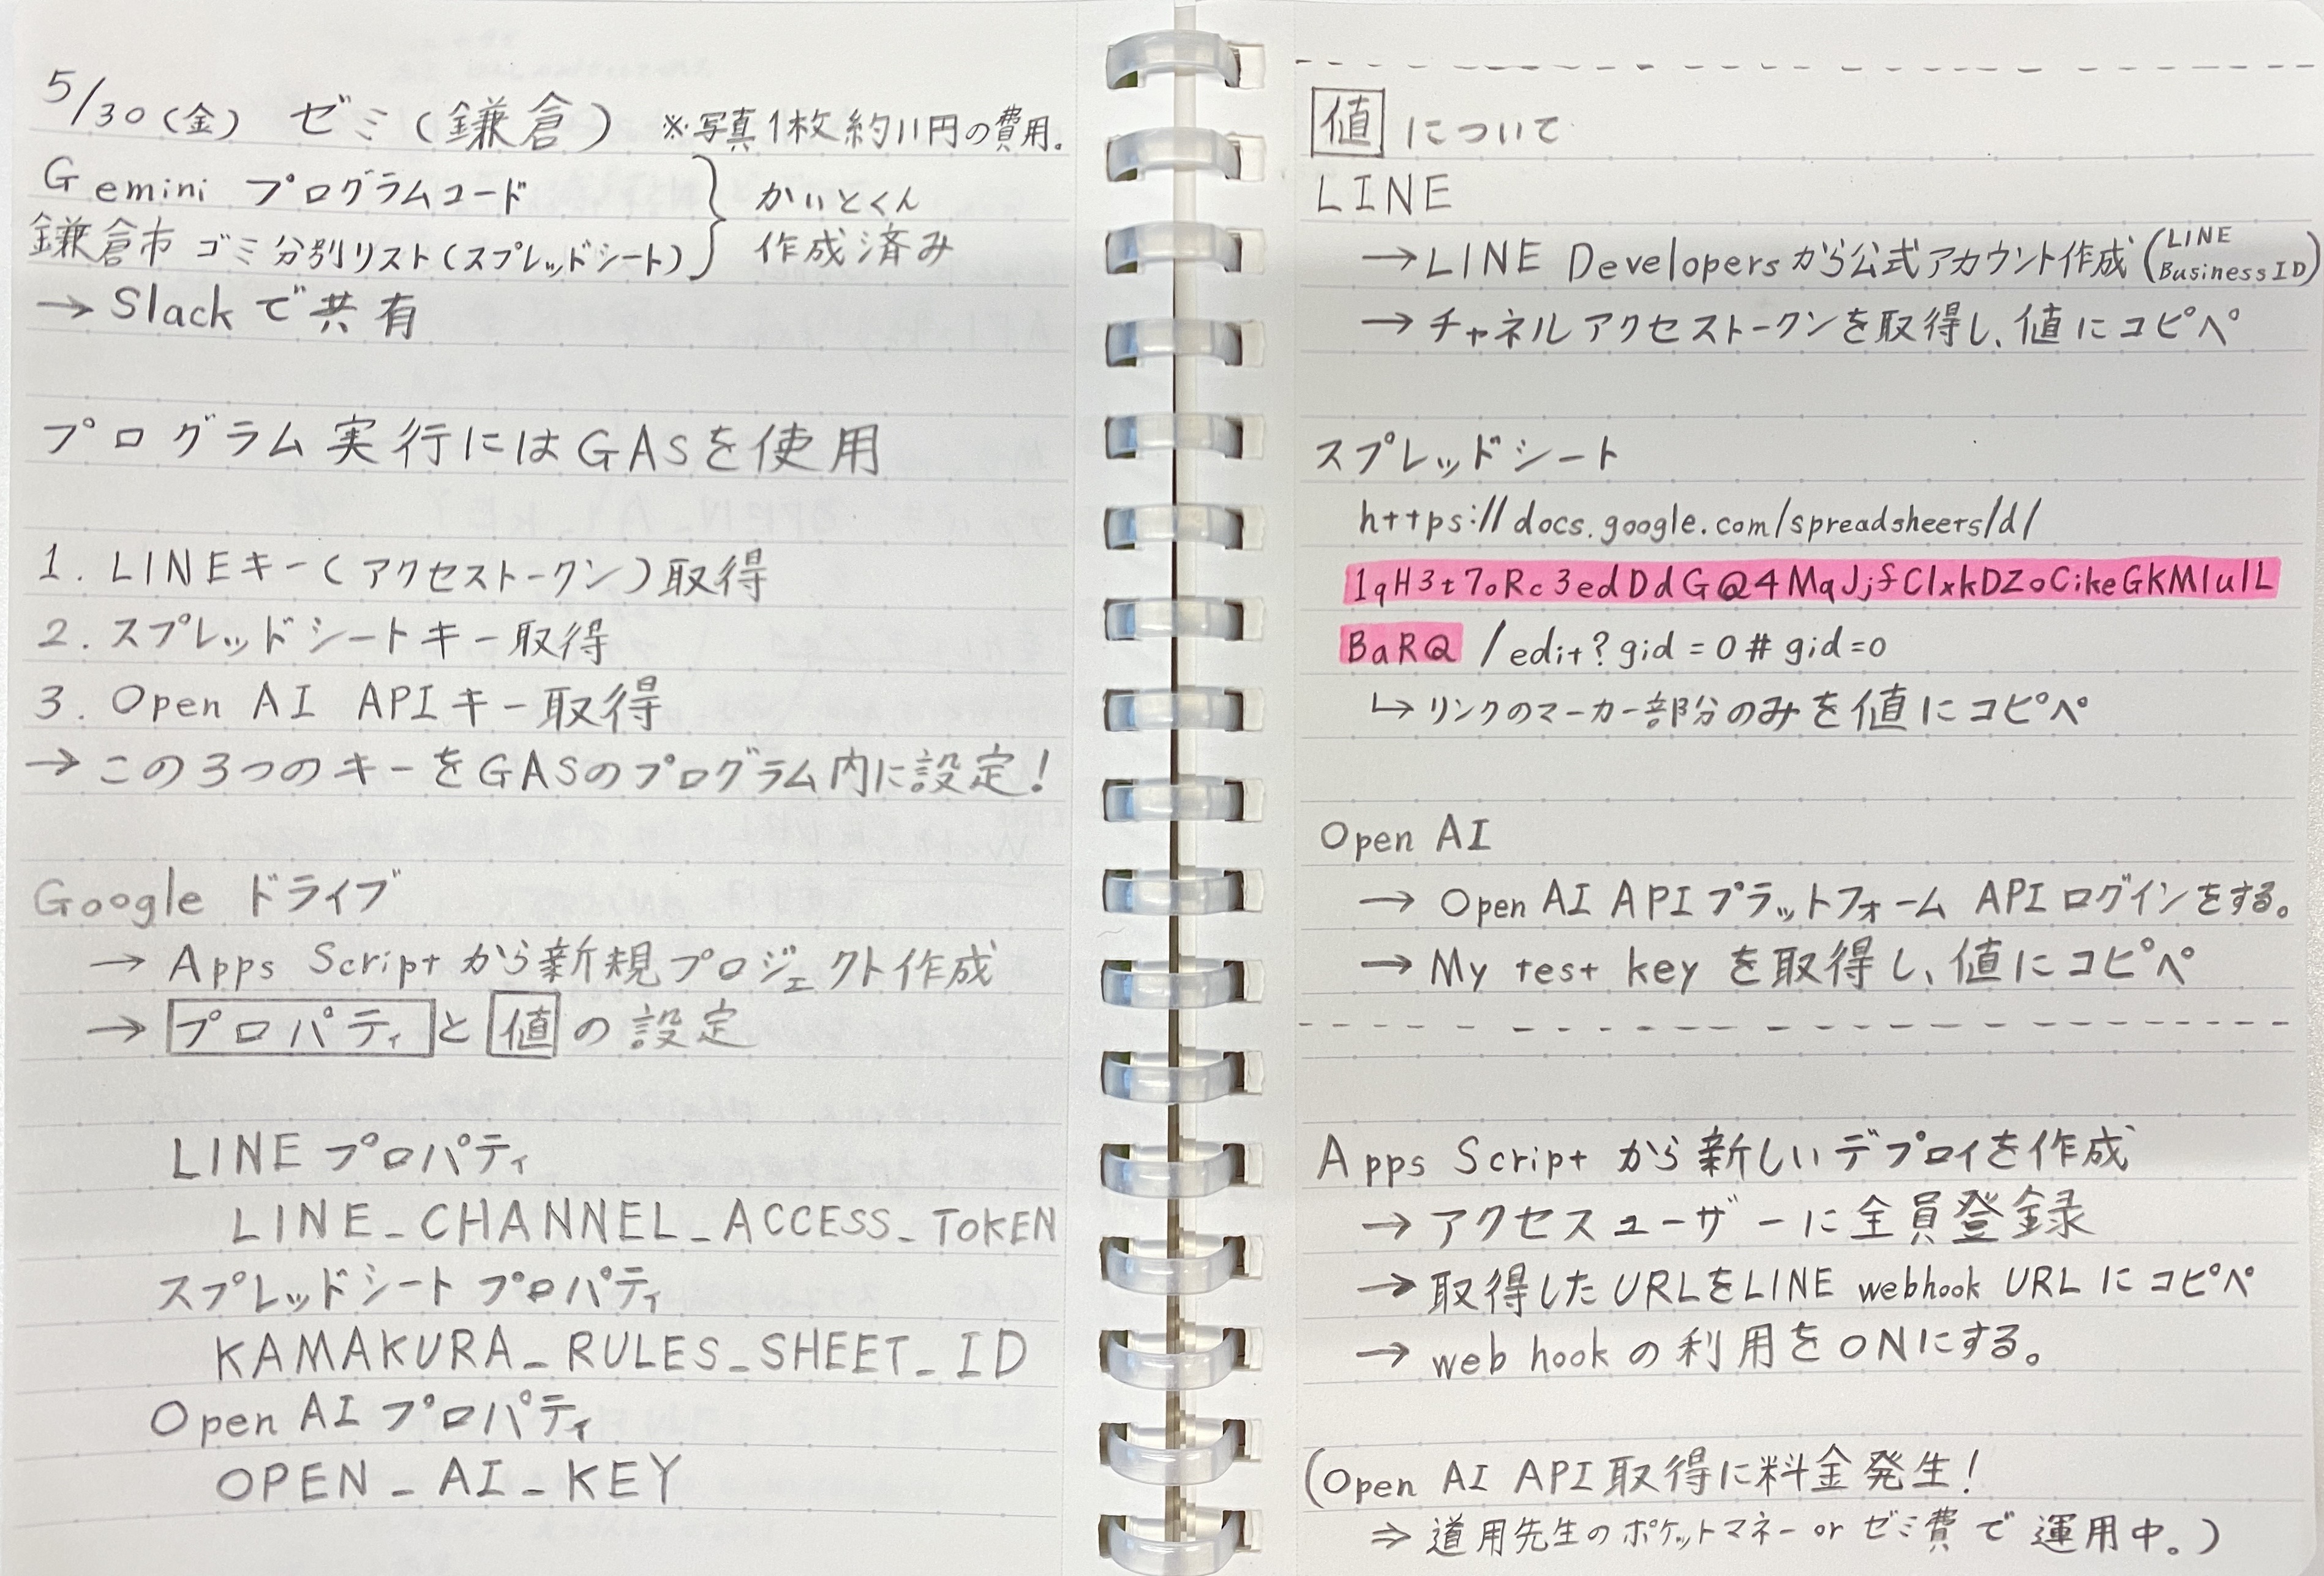 5/30(金) ゼミ(鎌倉) ※写真1枚約11円の費用。
Gemini プログラムコード
鎌倉市 ゴミ分別リスト(スプレッドシート)
かいとくん
作成済み
→ Slackで共有
プログラム実行にはGASを使用
1. LINEキー(アクセストークン)取得
2. スプレッドシートキー取得
3. Open AI APIキー取得
→ この3つのキーをGASのプログラム内に設定!
Google ドライブ
→ Apps Scriptから新規プロジェクト作成
→ プロパティと値の設定
LINE プロパティ
LINE_CHANNEL_ACCESS_TOKEN
スプレッドシート プロパティ
KAMAKURA_RULES_SHEET_ID
Open AI プロパティ
OPEN_AI_KEY
値について
LINE
→LINE Developersから公式アカウント作成(LINE Business ID)
→チャネルアクセストークンを取得し、値にコピペ
スプレッドシート
https://docs.google.com/spreadsheets/d/
1qH3t7oRc3edDdGQ4MqJjfClxkDZoCikeGKMlulL
BaRQ /edit?gid=0#gid=0
↳リンクのマーカー部分のみを値にコピペ
Open AI
→ Open AI APIプラットフォーム APIログインをする。
→ My test key を取得し、値にコピペ
Apps Script から新しいデプロイを作成
→ アクセスユーザーに全員登録
→ 取得したURLをLINE webhook URLにコピペ
→ web hookの利用をONにする。
(Open AI API取得に料金発生!
⇒ 道用先生のポケットマネー or ゼミ費で運用中。)